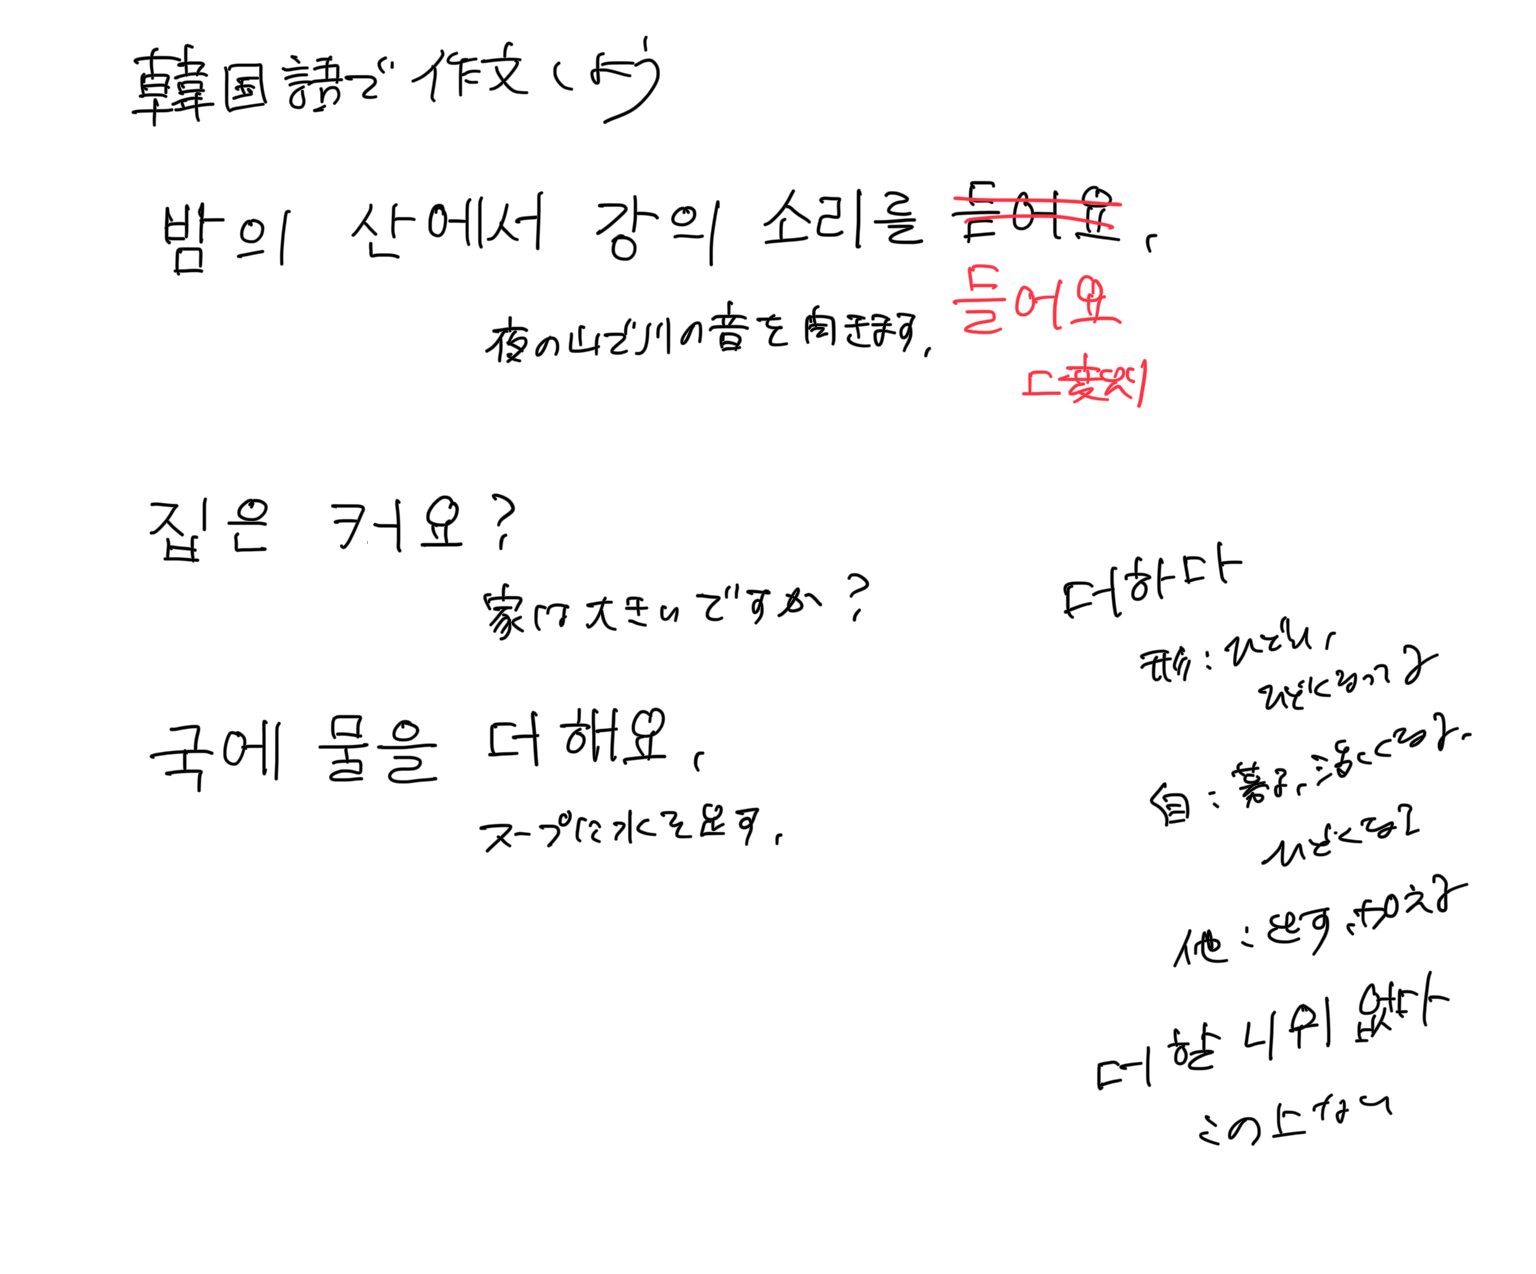 韓国語で作文しよう
밤의 산에서 강의 소리를 듣어요.
들어요
夜の山で川の音を聞きます.
ㄷ変則
집은 커요?
家は大きいですか?
국에 물을 더해요.
スープに水を足す.
더하다
形:ひどい,
ひどくなってる
自:募る、濃くなる.
ひどくなる
他:足す、加える
더할 나위 없다
この上ない